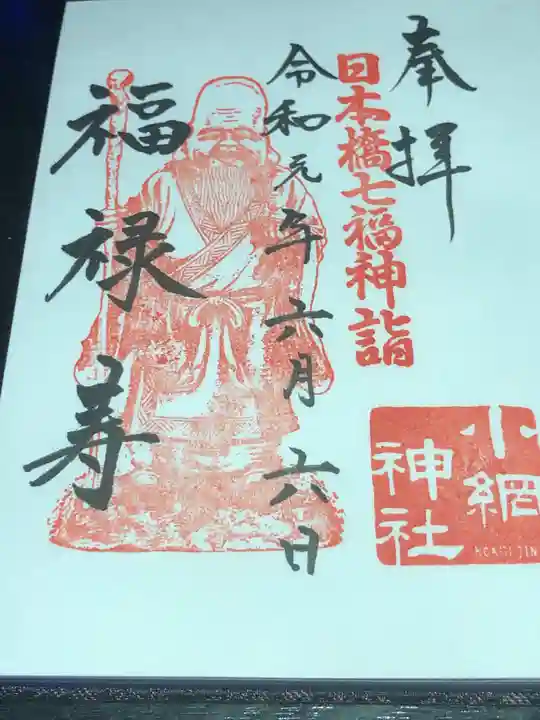 奉拝
日本橋七福神詣
令和元年六月六日
福禄寿
小網
神社